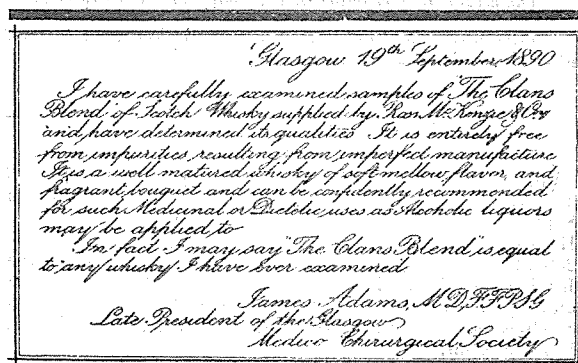 Glasgow 19th September 1890
I have carefully examined samples of "The Clans
Blend" of Scotch Whisky supplied by McKenzie & Coy
and have determined its qualities It is entirely free
from impurities resulting from imperfect manufacture
It is a well matured whisky of soft mellow flavor and
fragrant bouquet and can be confidently recommended
for such Medicinal or Dietetic uses as Alcoholic liquors
may be applied to
In fact I may say "The Clans Blend" is equal
to any whisky I have ever examined
James Adams, MD, FFPSG
Late President of the Glasgow
Medico Chirurgical Society